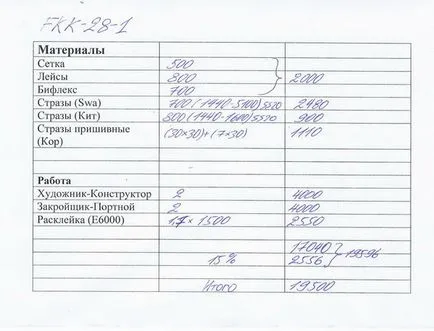 FKK-28-1
Материалы
Сетка 500
Лейсы 800 2000
Бифлекс 700
Стразы (Swa) 700 (1440-5100) 5520 2480
Стразы (Кит) 800 (1440-1600) 5520 900
Стразы пришивные (30x30)+(7x30) 1110
(Кор)
Работа
Художник-Конструктор 2 4000
Закройщик-Портной 2 4000
Расклейка (E6000) 1,7 x 1500 2550
17040 19596
15% 2556
Итого 19500